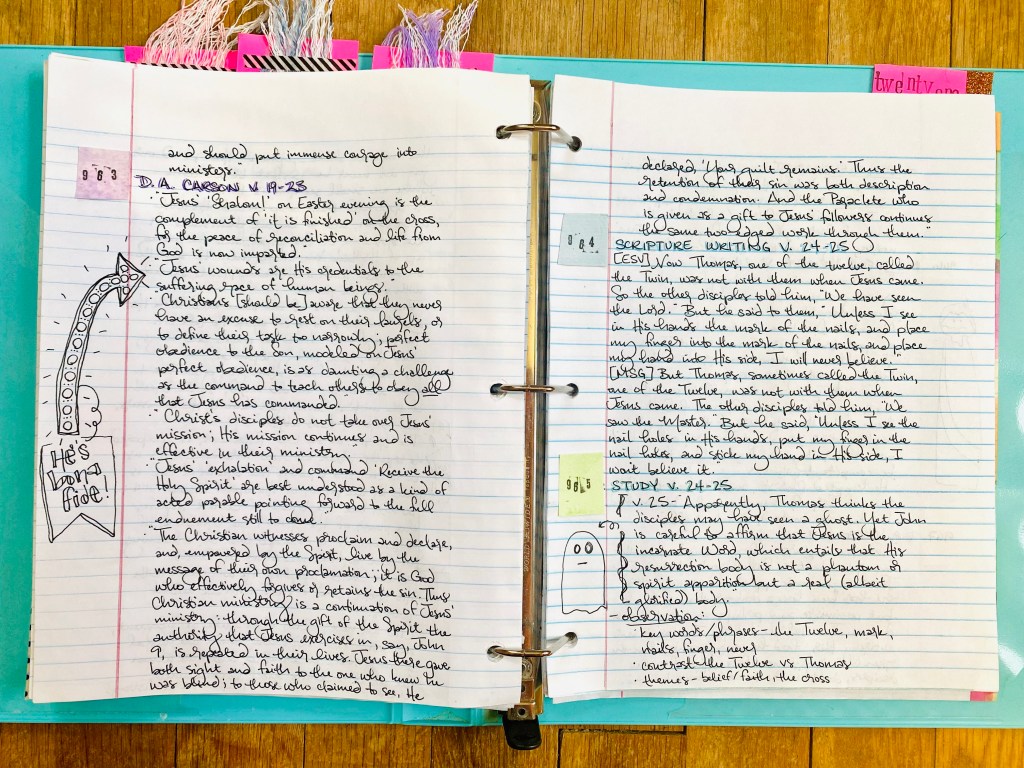 and should put immense courage into
ministers."
963
D.A. CARSON V. 19-23
· "Jesus' 'Shalom!' on Easter evening is the
complement of 'it is finished' on the cross,
for the peace of reconciliation and life from
God is now imparted.
· "Jesus' wounds are His credentials to the
suffering race of human beings."
· "Christians [should be] aware that they never
have an excuse to rest on their laurels, or
to define their task too narrowly; perfect
obedience to the Son, modeled on Jesus'
perfect obedience, is as daunting a challenge
as the command to teach others to obey all
that Jesus has commanded.
· "Christ's disciples do not take over Jesus'
mission; His mission continues and is
effective in their ministry.
· "Jesus' 'exhalation' and command 'Receive the
Holy Spirit' are best understood as a kind of
acted parable pointing forward to the full
enduement still to come.
· "The Christian witnesses proclaim and declare,
and, empowered by the Spirit, live by the
message of their own proclamation; it is God
who effectively forgives or retains the sin. Thus
Christian ministry is a continuation of Jesus'
ministry: through the gift of the Spirit, the
authority that Jesus exercises in, say, John
9, is repeated in their lives. Jesus there gave
both sight and faith to the one who knew he
was blind; to those who claimed to see, He
He's
bona
fide!
declared, 'Your guilt remains.' Thus the
retention of their sin was both description
and condemnation. And the Paraclete who
is given as a gift to Jesus' followers continues
the same two edged work through them."
964
SCRIPTURE WRITING V. 24-25
[ESV] Now Thomas, one of the twelve, called
the Twin, was not with them when Jesus came.
So the other disciples told him, "We have seen
the Lord." But he said to them, "Unless I see
in His hands the mark of the nails, and place
my finger into the mark of the nails, and place
my hand into His side, I will never believe."
[MSG] But Thomas, sometimes called the Twin,
one of the Twelve, was not with them when
Jesus came. The other disciples told him, "We
saw the Master." But he said, "Unless I see the
nail holes in His hands, put my finger in the
nail holes, and stick my hand in His side, I
won't believe it."
965
STUDY V. 24-25
v. 25- Apparently, Thomas thinks the
disciples may have seen a ghost. Yet John
is careful to affirm that Jesus is the
incarnate Word, which entails that His
resurrection body is not a phantom or
spirit apparition but a real (albeit
glorified) body.
- observation:
· key words/phrases - the Twelve, mark,
nails, finger, never
· contrast - the Twelve vs Thomas
· themes - belief/faith, the cross